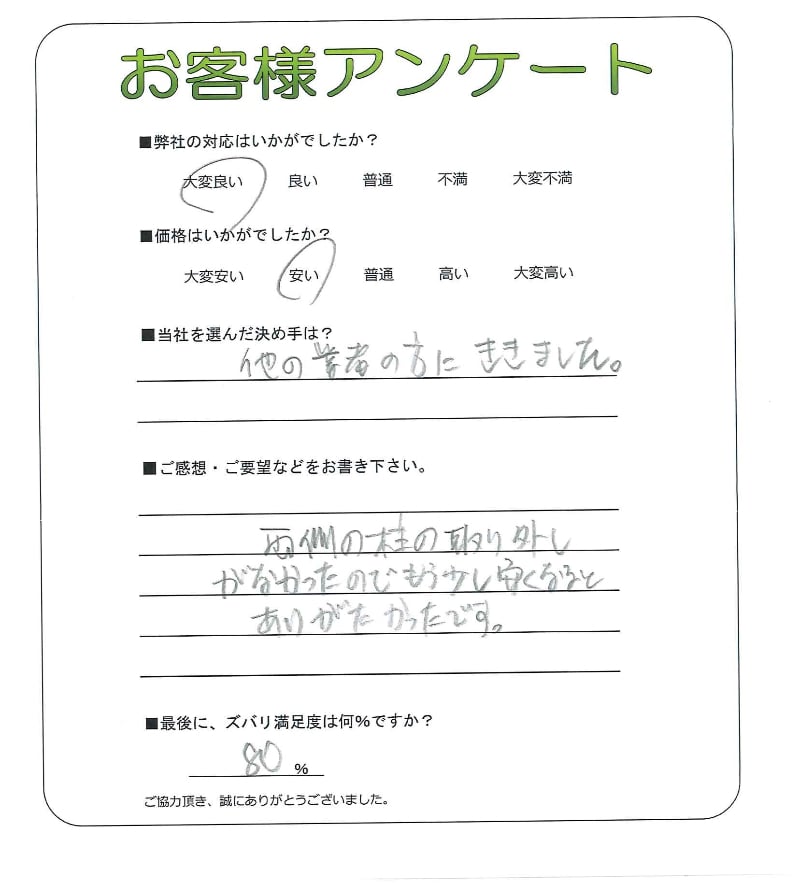 お客様アンケート
■弊社の対応はいかがでしたか？
大変良い 良い 普通 不満 大変不満
■価格はいかがでしたか？
大変安い 安い 普通 高い 大変高い
■当社を選んだ決め手は？
他の業者の方にききました。
■ご感想・ご要望などをお書き下さい。
両側の柱の取り外し
がなかったのでもう少し安くなると
ありがたかったです。
■最後に、ズバリ満足度は何%ですか？
80 %
ご協力頂き、誠にありがとうございました。